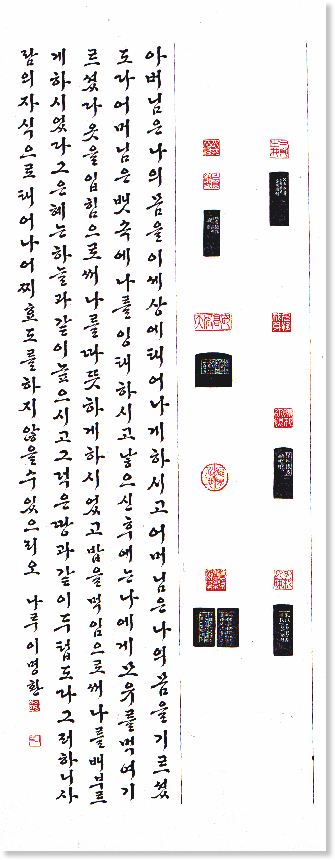 아버님은나의몸을이세상에태어나게하시고어머님은나의몸을기르셨
도다어머님은뱃속에나를잉태하시고낳으신후에는나에게모유를먹여기
르셨다옷을입힘으로써나를따뜻하게하시었고밥을먹임으로써나를배부르
게하시었다그은혜는하늘과같이높으시고그덕은땅과같이두텁도다그러하니사
람의자식으로태어나어찌효도를하지않을수있으리오 나루이명환